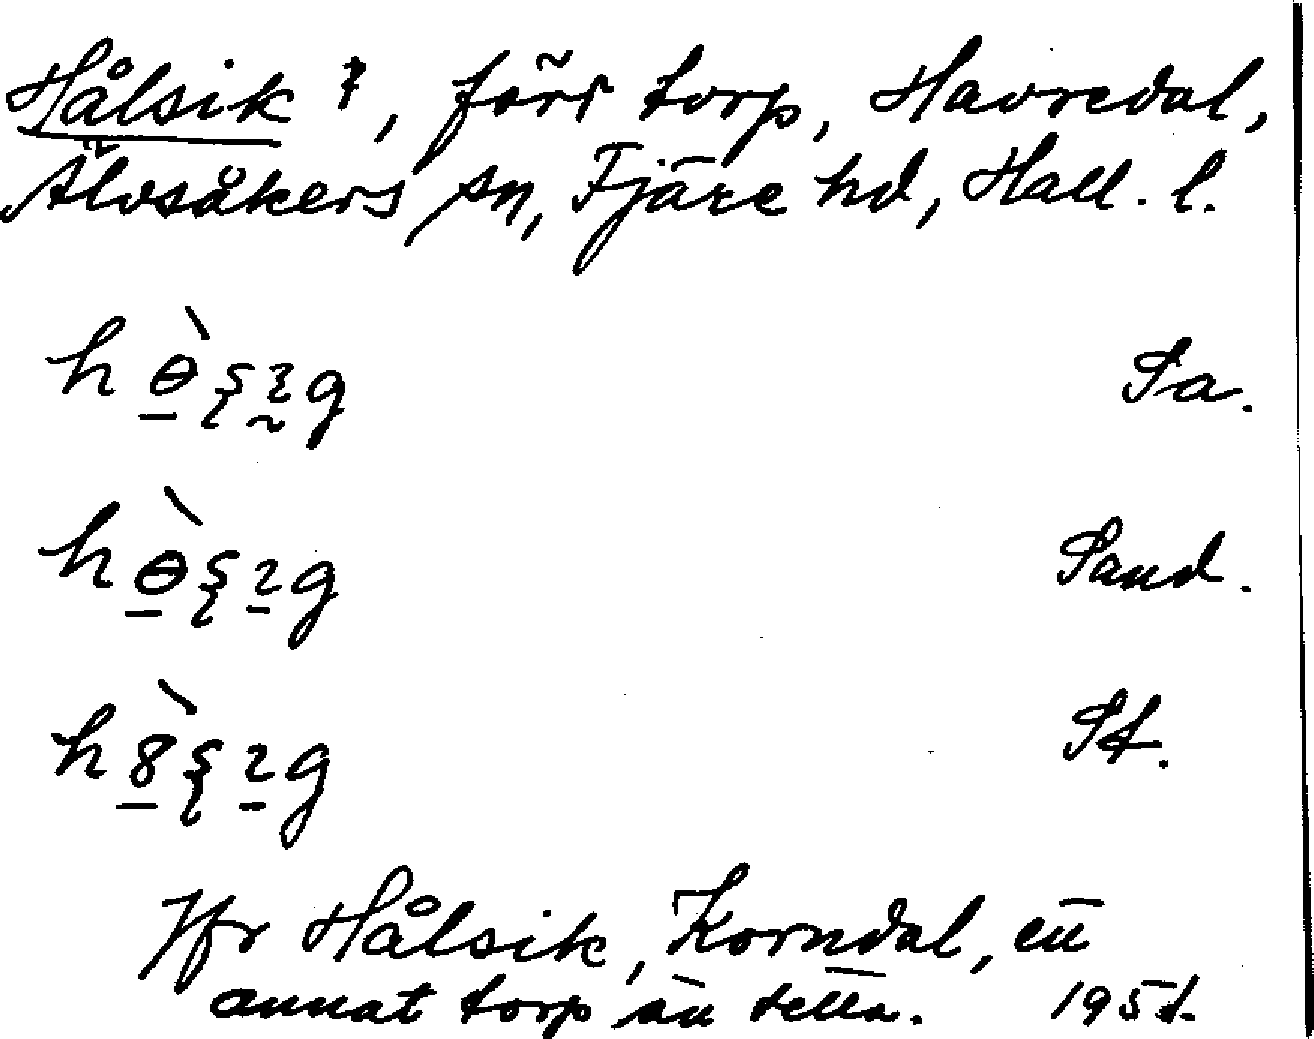 Hålsik ?, förr torp, Havredal,
Älvsåkers sn, Fjäre hd, Hall. l.
Sa.
Sand.
St.
Jfr Hålsik, Korndal, ett
annat torp än detta. 1951.